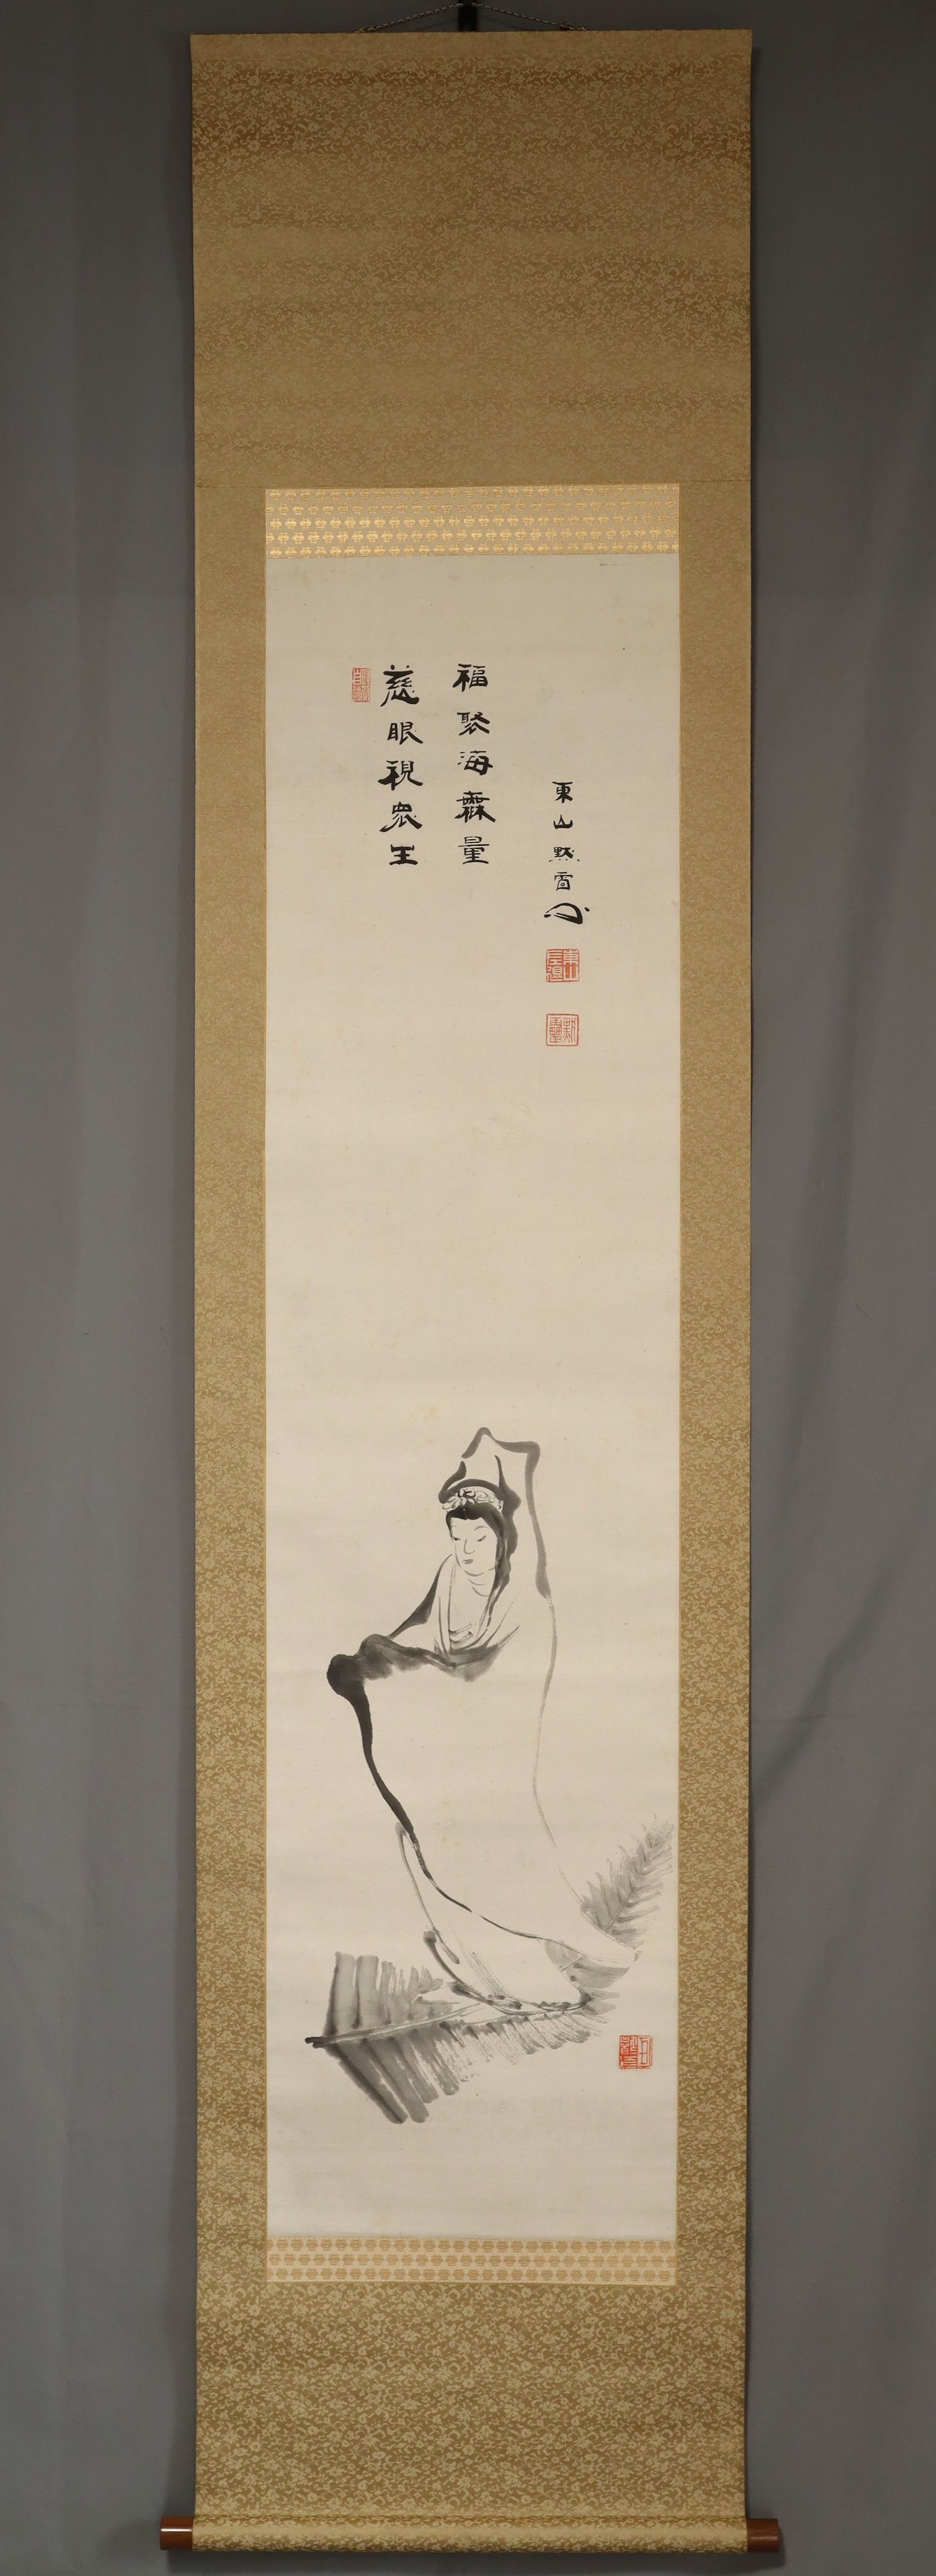 慈眼視衆生
福聚海無量
東山黙雷